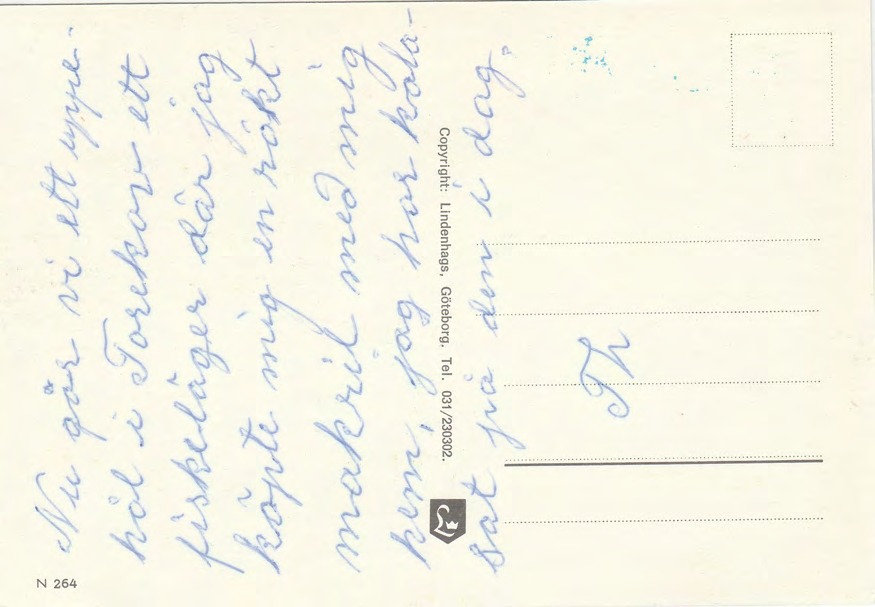 Nu gör vi ett uppe-
hål i Torekov ett
fiskeläger där jag
köpte mig en rökt
makril med mig
hem, jag har kala-
sat på den i dag.
Th
Copyright: Lindenhags, Göteborg. Tel. 031/230302.
N 264